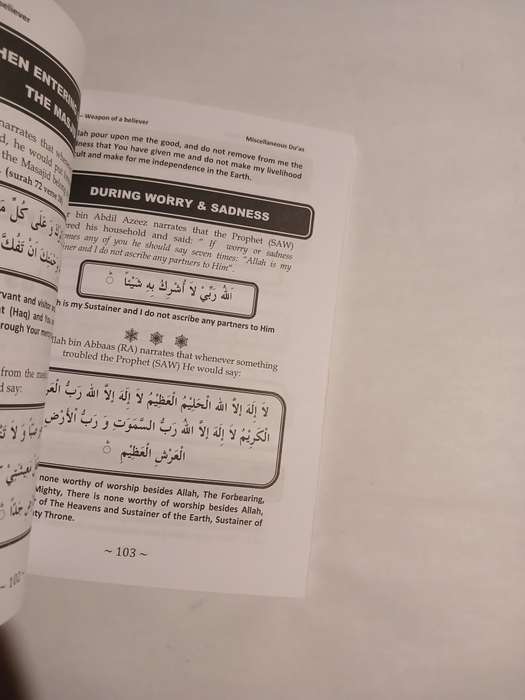 believer
HEN ENTERING
THE MAS
narrates that whe
d, he would
the Masjid
(surah 72 verse
وَ عَلَى كُلِّ
رَحْمَتِكَ اَنْ تَفُكَّ
rvant and visitor
t (Haq) and You
rough Your
from the
d say:
~ 102 ~
– Weapon of a believer
Miscellaneous Du'as
lah pour upon me the good, and do not remove from me the
ness that You have given me and do not make my livelihood
cult and make for me independence in the Earth.
DURING WORRY & SADNESS
r bin Abdil Azeez narrates that the Prophet (SAW)
ered his household and said: " If worry or sadness
omes any of you he should say seven times: "Allah is my
iner and I do not ascribe any partners to Him".
اَللهُ رَبِّيْ لَا اُشْرِكُ بِهِ شَيْئًا
h is my Sustainer and I do not ascribe any partners to Him
llah bin Abbaas (RA) narrates that whenever something
troubled the Prophet (SAW) He would say:
لَا إِلَهَ إِلاَّ الله الْحَلِيْمُ الْعَظِيْمُ لَا إِلَهَ إِلاَّ الله رَبُّ الْعَر
الْكَرِيْمُ لَا إِلَهَ إِلاَّ اللهُ رَبُّ السَّمَوٰتِ وَ رَبُّ الْأَرْضِ
الْعَرْشِ الْعَظِيْمِ
none worthy of worship besides Allah, The Forbearing,
Mighty, There is none worthy of worship besides Allah,
of The Heavens and Sustainer of the Earth, Sustainer of
ty Throne.
~ 103 ~